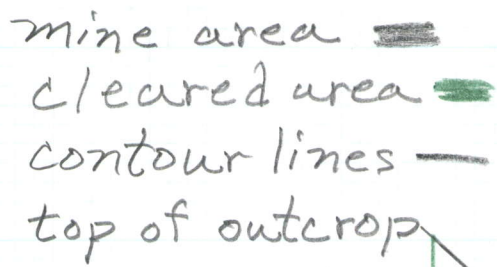 mine area
cleared area
contour lines
top of outcrop